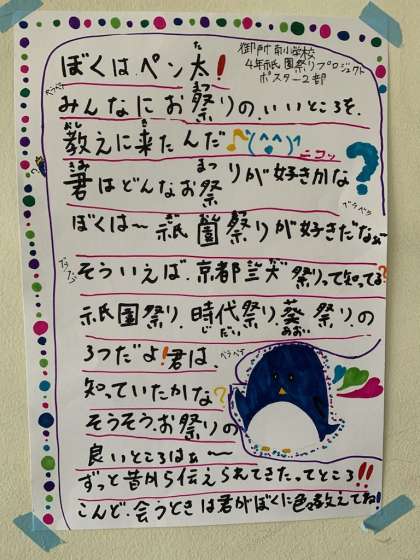 御所南小学校
4年祇園祭りプロジェクト
ポスター2部
ぼくは、ペン太!
た
ペラペラ
まつ
みんなにお祭りの、いいところを、
おし き
教えに来たんだ♪(^^)
ニコッ
きみ まつ
君はどんなお祭りが好きかな?
ペラペラ
ぎ おん まつ
ぼくは〜祇園祭りが好きだなぁ
ペラペラ
そういえば、京都三大祭りって知ってる?
祇園祭り、時代祭り、葵祭りの
じだい あおい
3つだよ!君は、
ペラペラ
知っていたかな?
そうそう、お祭りの
良いところはぁ〜
ずっと昔から伝えられてきたってところ!!
こんど、会うときは君がぼくに色々教えてね!